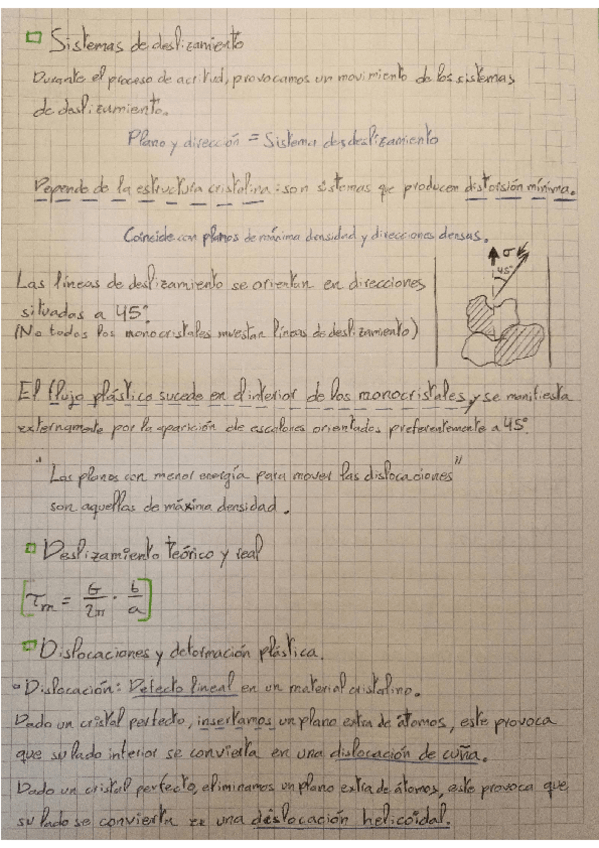 Sistemas de deslizamiento
Durante el proceso de acritud, provocamos un movimiento de los sistemas
de deslizamiento.
Plano y dirección = Sistema de deslizamiento
Depende de la estructura cristalina: son sistemas que producen distorsión mínima.
Coincide con planos de máxima densidad y direcciones densas.
σ
45°
Las líneas de deslizamiento se orientan en direcciones
situadas a 45°.
(No todos los monocristales muestran líneas de deslizamiento)
El flujo plástico sucede en el interior de los monocristales y se manifiesta
externamente por la aparición de escalones orientados preferentemente a 45°.
"Los planos con menor energía para mover las dislocaciones"
son aquellas de máxima densidad.
Deslizamiento teórico y real
[τm = G/2π · b/a]
Dislocaciones y deformación plástica.
Dislocación: Defecto lineal en un material cristalino.
Dado un cristal perfecto, insertamos un plano extra de átomos, este provoca
que su lado inferior se convierta en una dislocación de cuña.
Dado un cristal perfecto, eliminamos un plano extra de átomos, esto provoca que
su lado se convierta en una dislocación helicoidal.